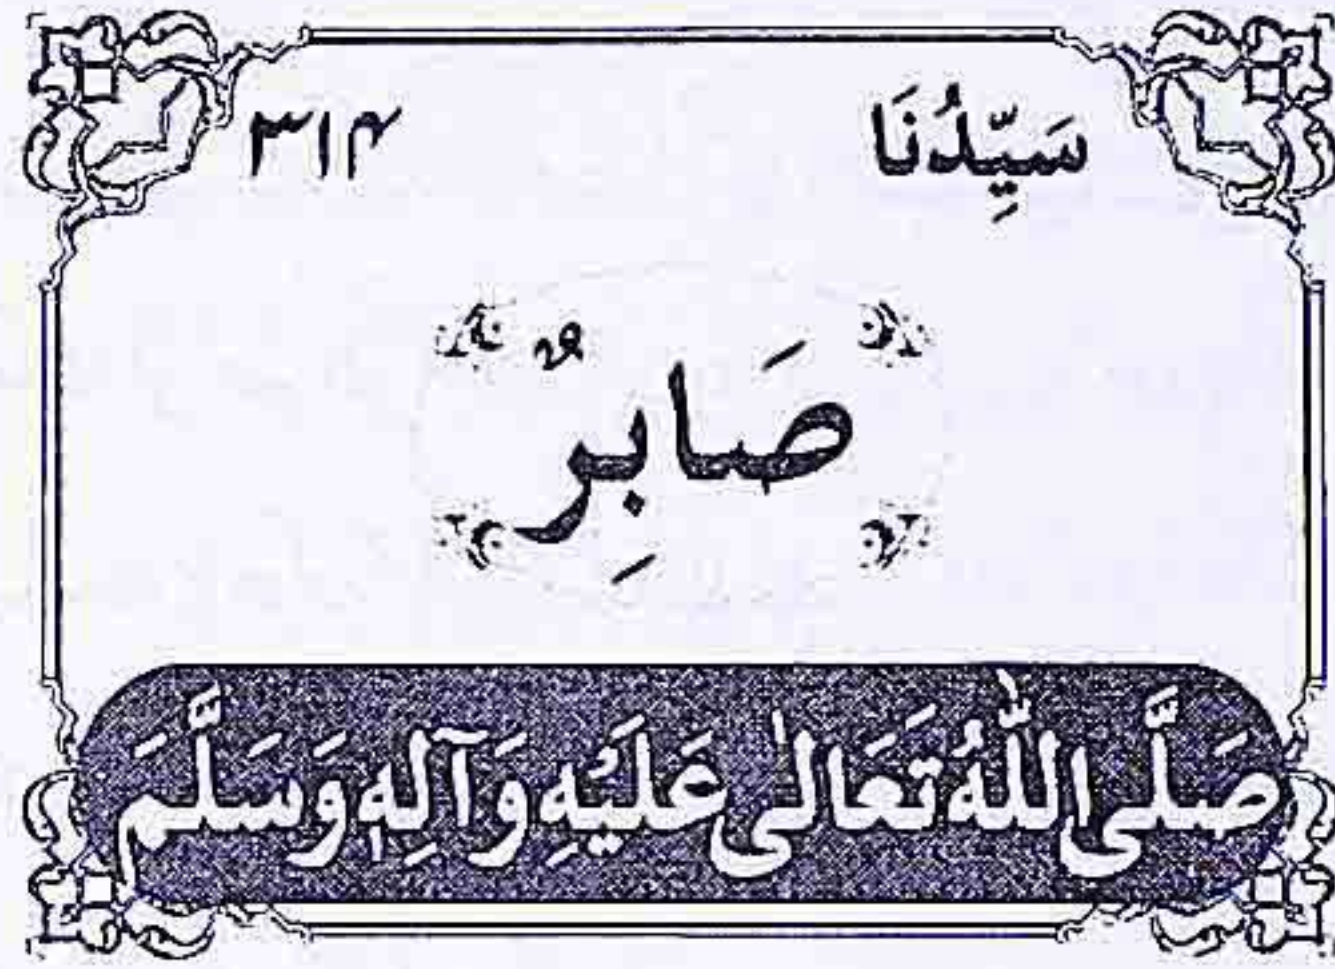 سَيِّدُنَا ۳۱۴
صَابِرٌ
صَلَّى اللّٰهُ تَعَالٰى عَلَيْهِ وَآلِهٖ وَسَلَّمَ